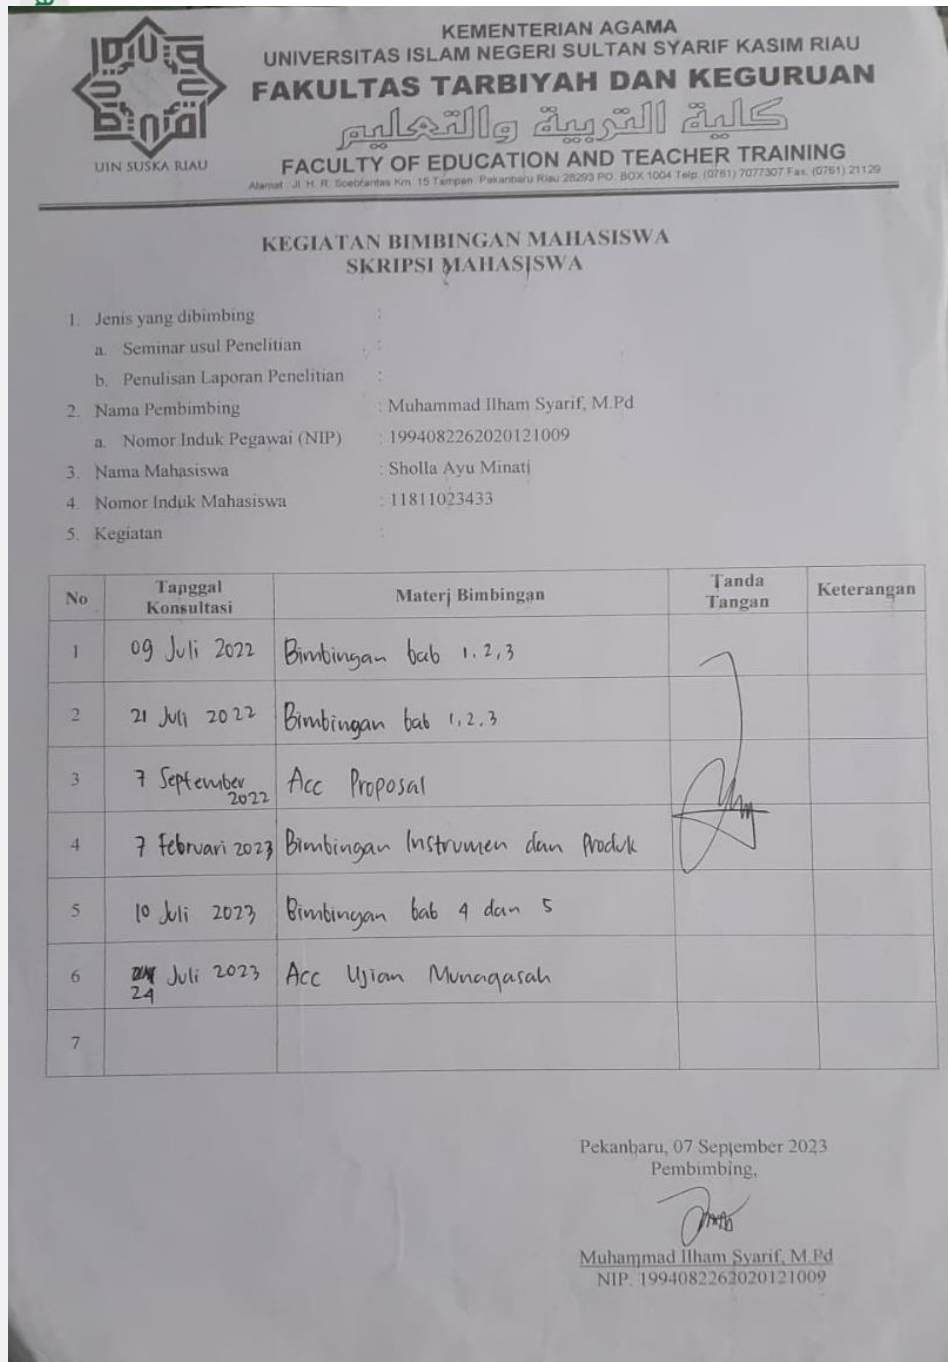 KEMENTERIAN AGAMA
UNIVERSITAS ISLAM NEGERI SULTAN SYARIF KASIM RIAU
FAKULTAS TARBIYAH DAN KEGURUAN
كلية التربية والتعليم
FACULTY OF EDUCATION AND TEACHER TRAINING
Alamat : Jl. H. R. Soebrantas Km. 15 Tampan Pekanbaru Riau 28293 PO. BOX 1004 Telp. (0761) 7077307 Fax. (0761) 21129
UIN SUSKA RIAU
KEGIATAN BIMBINGAN MAHASISWA
SKRIPSI MAHASISWA
1. Jenis yang dibimbing :
a. Seminar usul Penelitian :
b. Penulisan Laporan Penelitian :
2. Nama Pembimbing : Muhammad Ilham Syarif, M.Pd
a. Nomor Induk Pegawai (NIP) : 1994082262020121009
3. Nama Mahasiswa : Sholla Ayu Minati
4. Nomor Induk Mahasiswa : 11811023433
5. Kegiatan :
No Tanggal Konsultasi Materi Bimbingan Tanda Tangan Keterangan
1 09 Juli 2022 Bimbingan bab 1.2,3
2 21 Juli 2022 Bimbingan bab 1,2.3
3 7 September 2022 Acc Proposal
4 7 Februari 2023 Bimbingan Instrumen dan Produk
5 10 Juli 2023 Bimbingan bab 4 dan 5
6 24 Juli 2023 Acc Ujian Munaqasah
7
Pekanbaru, 07 September 2023
Pembimbing,
Muhammad Ilham Syarif, M.Pd
NIP. 1994082262020121009